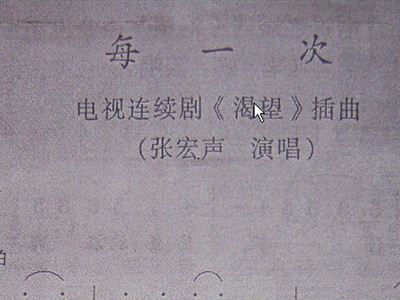 每一次
电视连续剧《渴望》插曲
(张宏声 演唱)